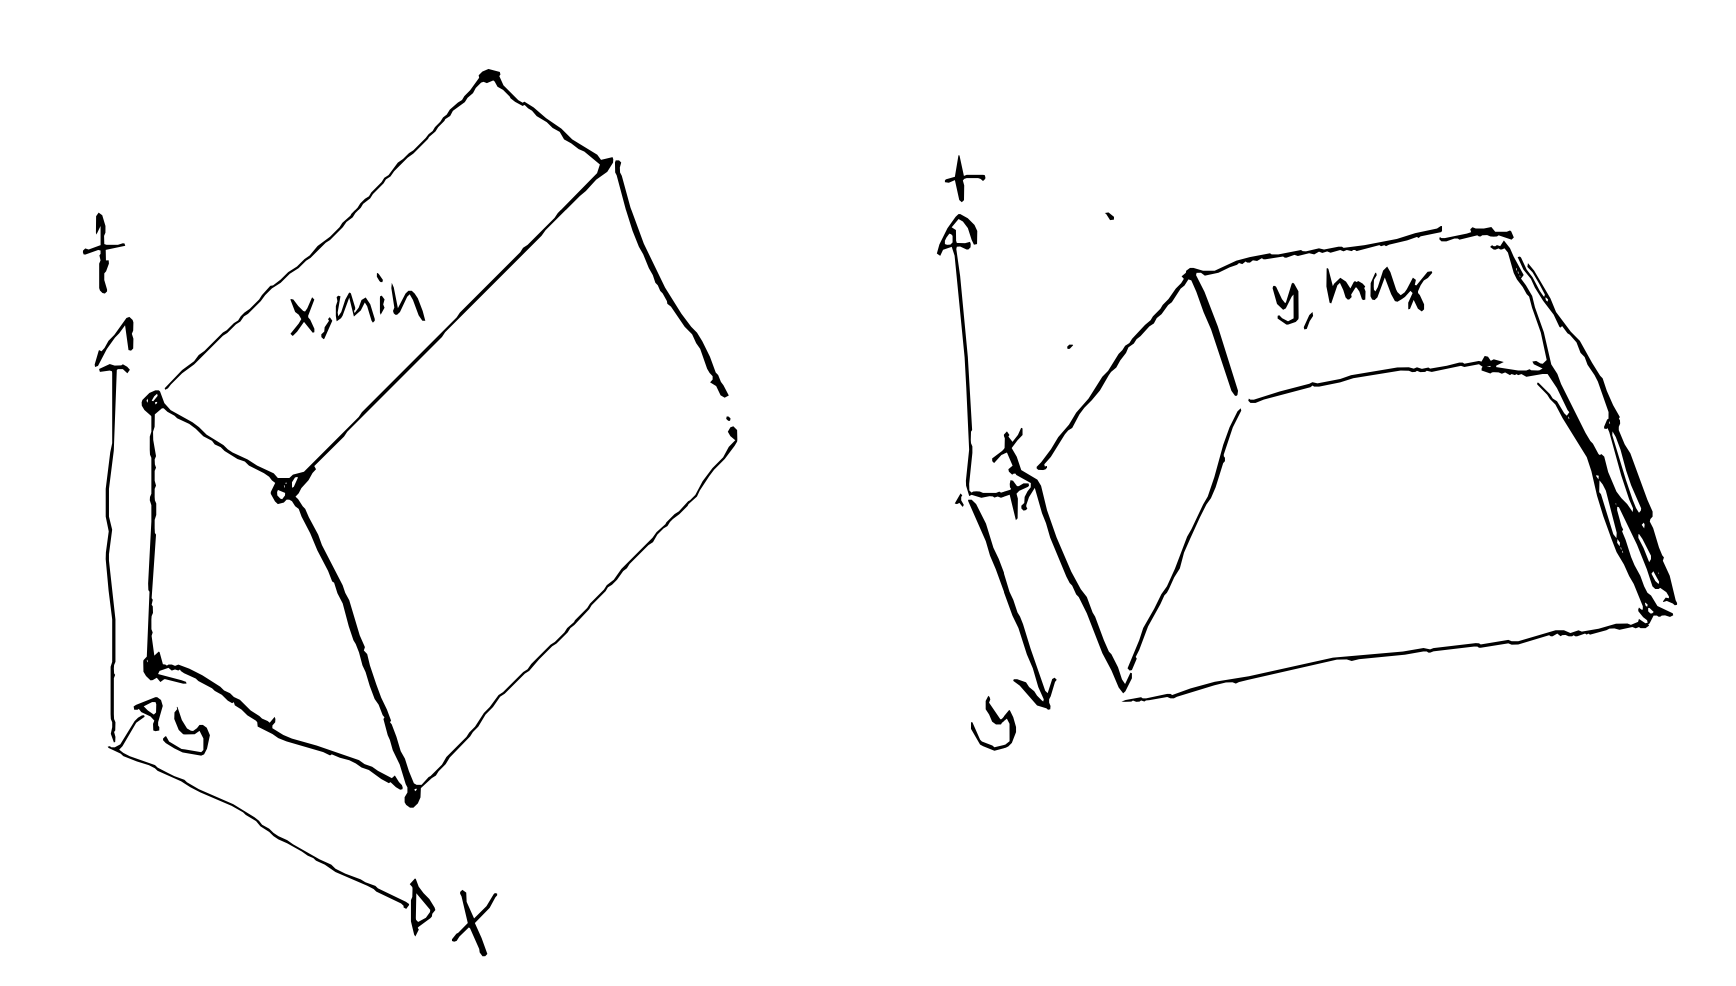 t
x,min
y
x
t
y,max
x
y